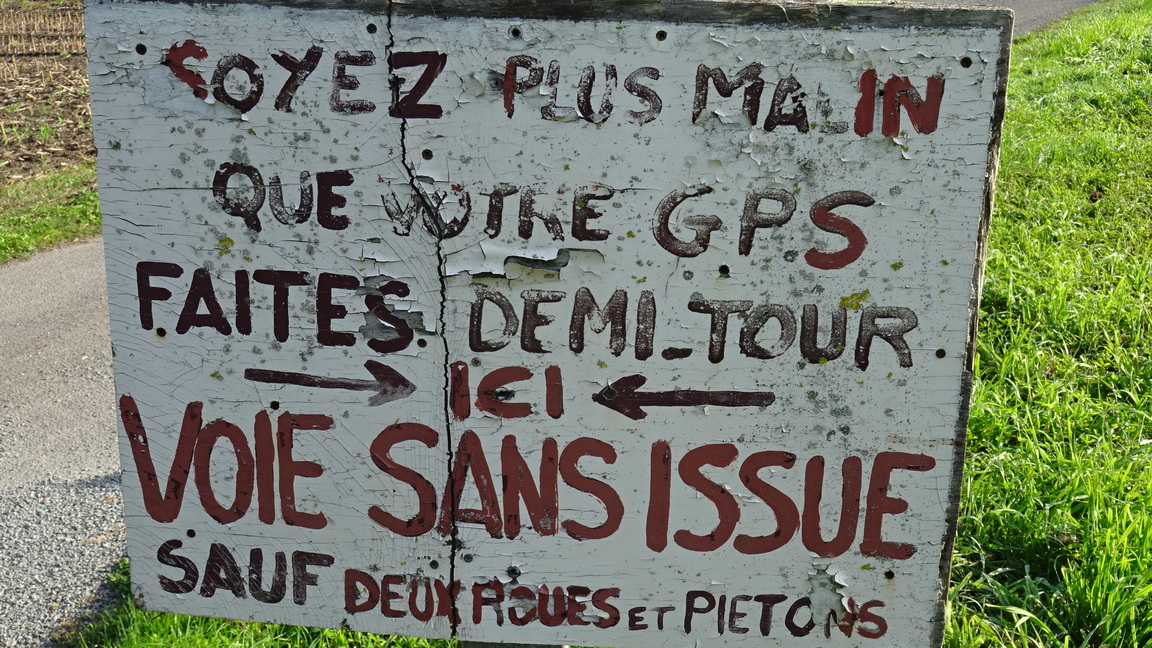 SOYEZ PLUS MALIN
QUE VOTRE GPS
FAITES DEMI-TOUR
→ ICI ←
VOIE SANS ISSUE
SAUF DEUX ROUES ET PIETONS